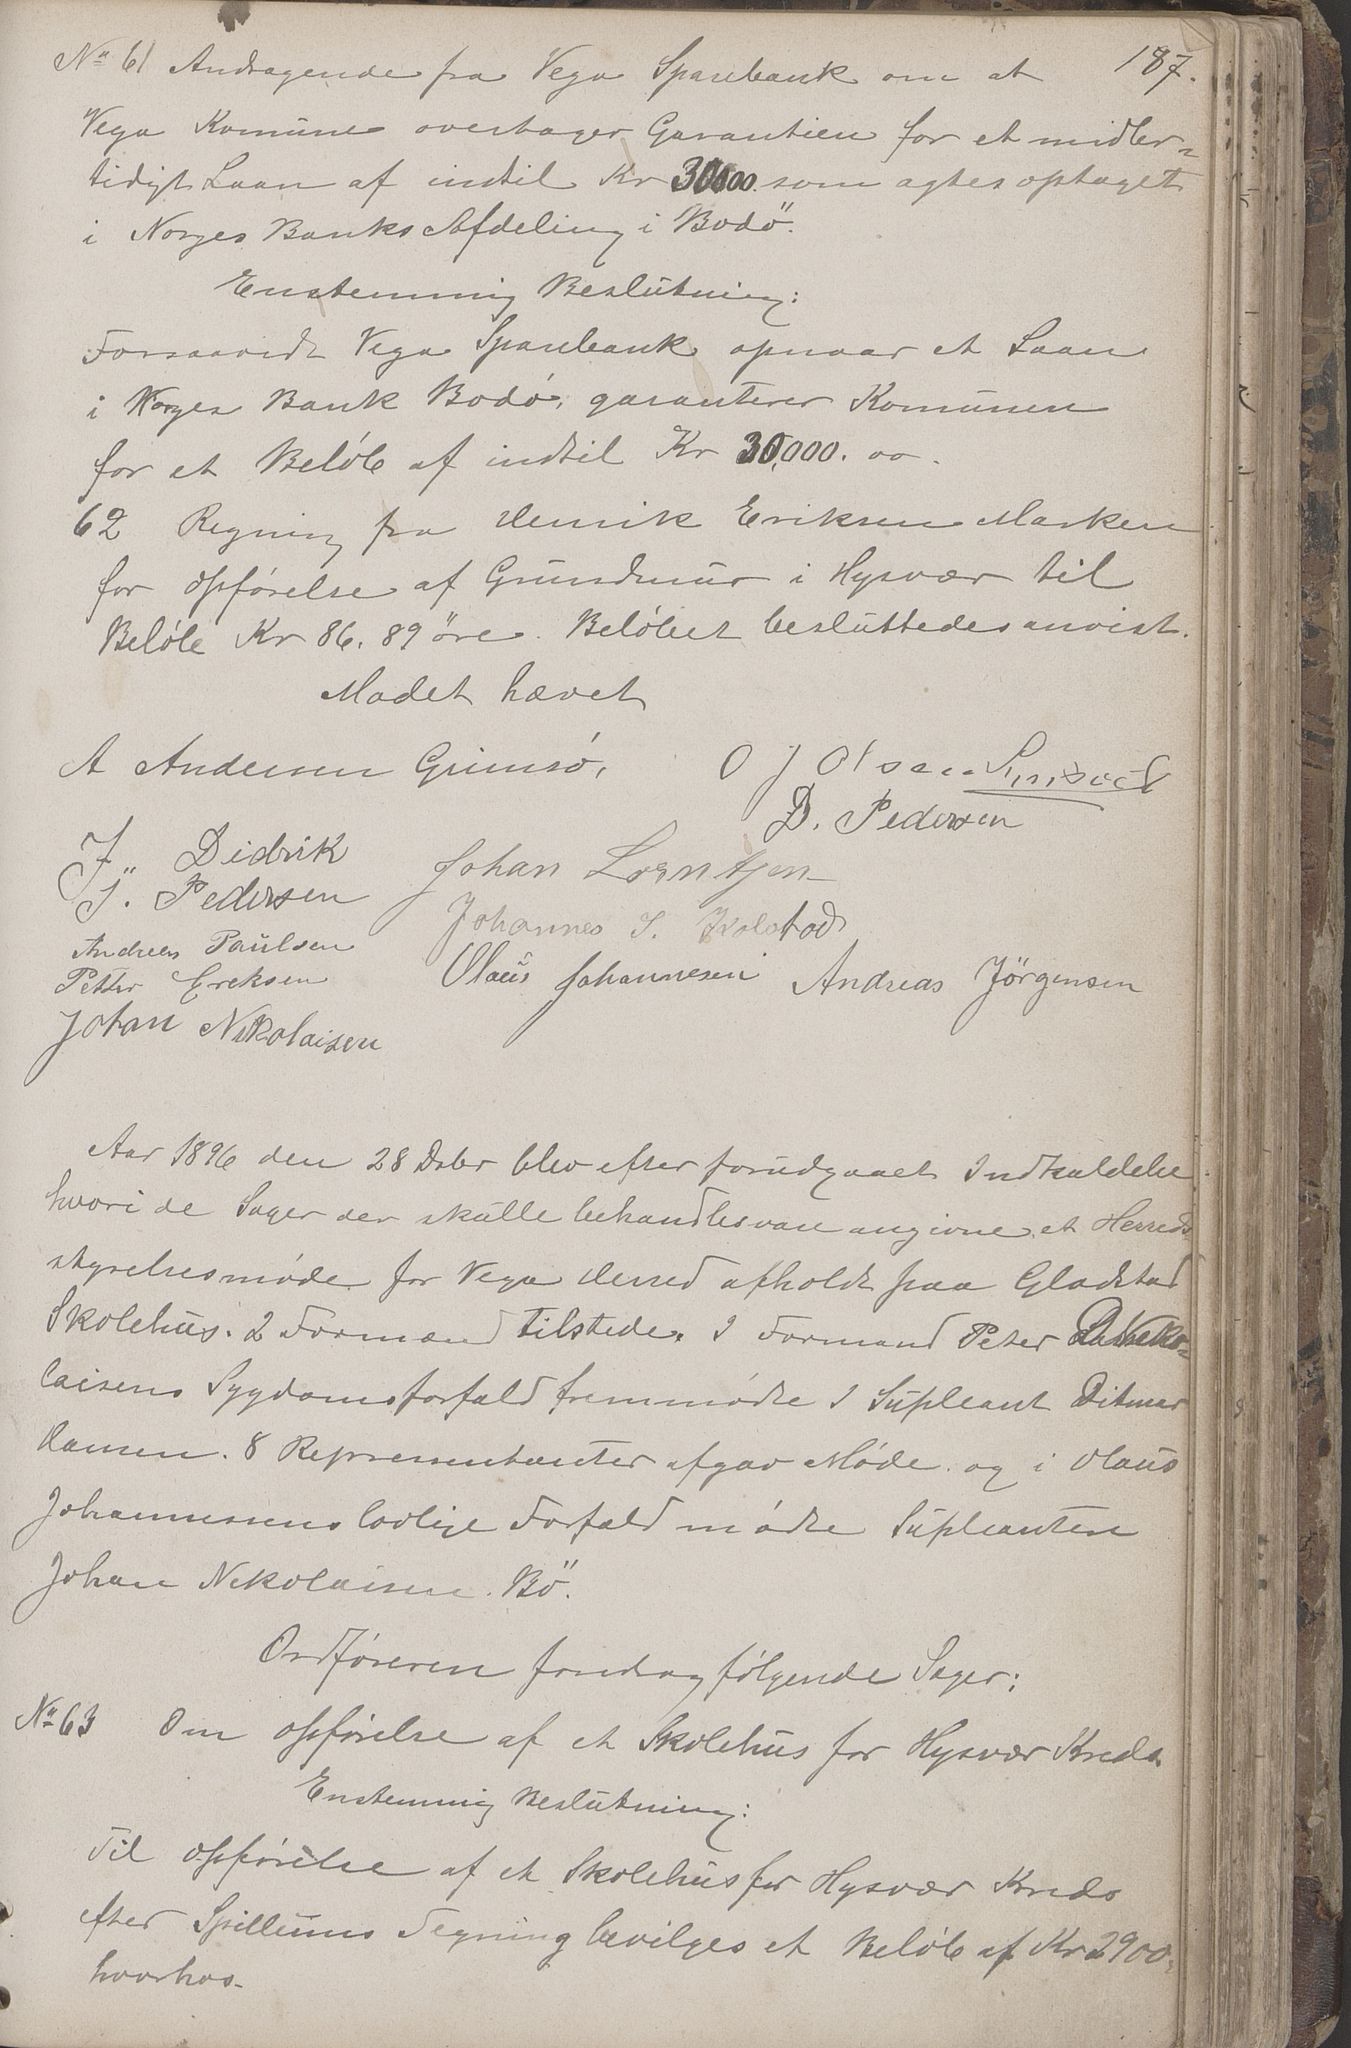 187.
No 61 Andragende fra Vega Sparebank om at
Vega Komune overtager Garantien for et midler-
tidigt Laan af indtil Kr 30000 som agtes optaget
i Norges Banks Afdeling i Bodö.
Enstemmig Beslutning:
Forsaavidt Vega Sparebank opnaar et Laan
i Norges Bank Bodó, garanterer Komunen
for et Belöb af indtil Kr 30,000. oo.
62 Regning fra Henrik Eriksen Marken
for Opförelse af Grundmur i Hysvær til
Belöb Kr 86. 89 öre. Belöbet besluttedes anvist.
Mödet hævet
A Andersen Grimsö,
O J Olsen
D. Pedersen
J. Didrik
J. Pedersen
Johan Lorntsen
Johannes I. Kolstad
Andreas Paulsen
Petter Ereksen
Olaus Johannesen
Andreas Jörgensen
Johan Nikolaisen
Aar 1896 den 28 Dsbr blev efter forudgaaet Indkaldelse
hvori de Sager der skulle behandles vare angivne, et Herreds-
styrelsesmöde for Vega Herred afholdt paa Gladstad
Skolehus. 2 Formænd tilstede. I Formand Peter Niko-
laisens Sygdomsforfald fremmödte 1 Supleant Ditmar
Hansen. 8 Representanter afgav Möde og i Olaus
Johannessens lovlige Forfald mödte Supleanten
Johan Nikolaisen Bö.
Ordföreren foredrog fölgende Sager:
No 63 Om Opförelse af et Skolehus for Hysvær Kreds
Enstemmig Beslutning:
Til Opförelse af et Skolehus for Hysvær Kreds
efter Spillums Tegning bevilges et Belöb af Kr 2900,
hvorhos-